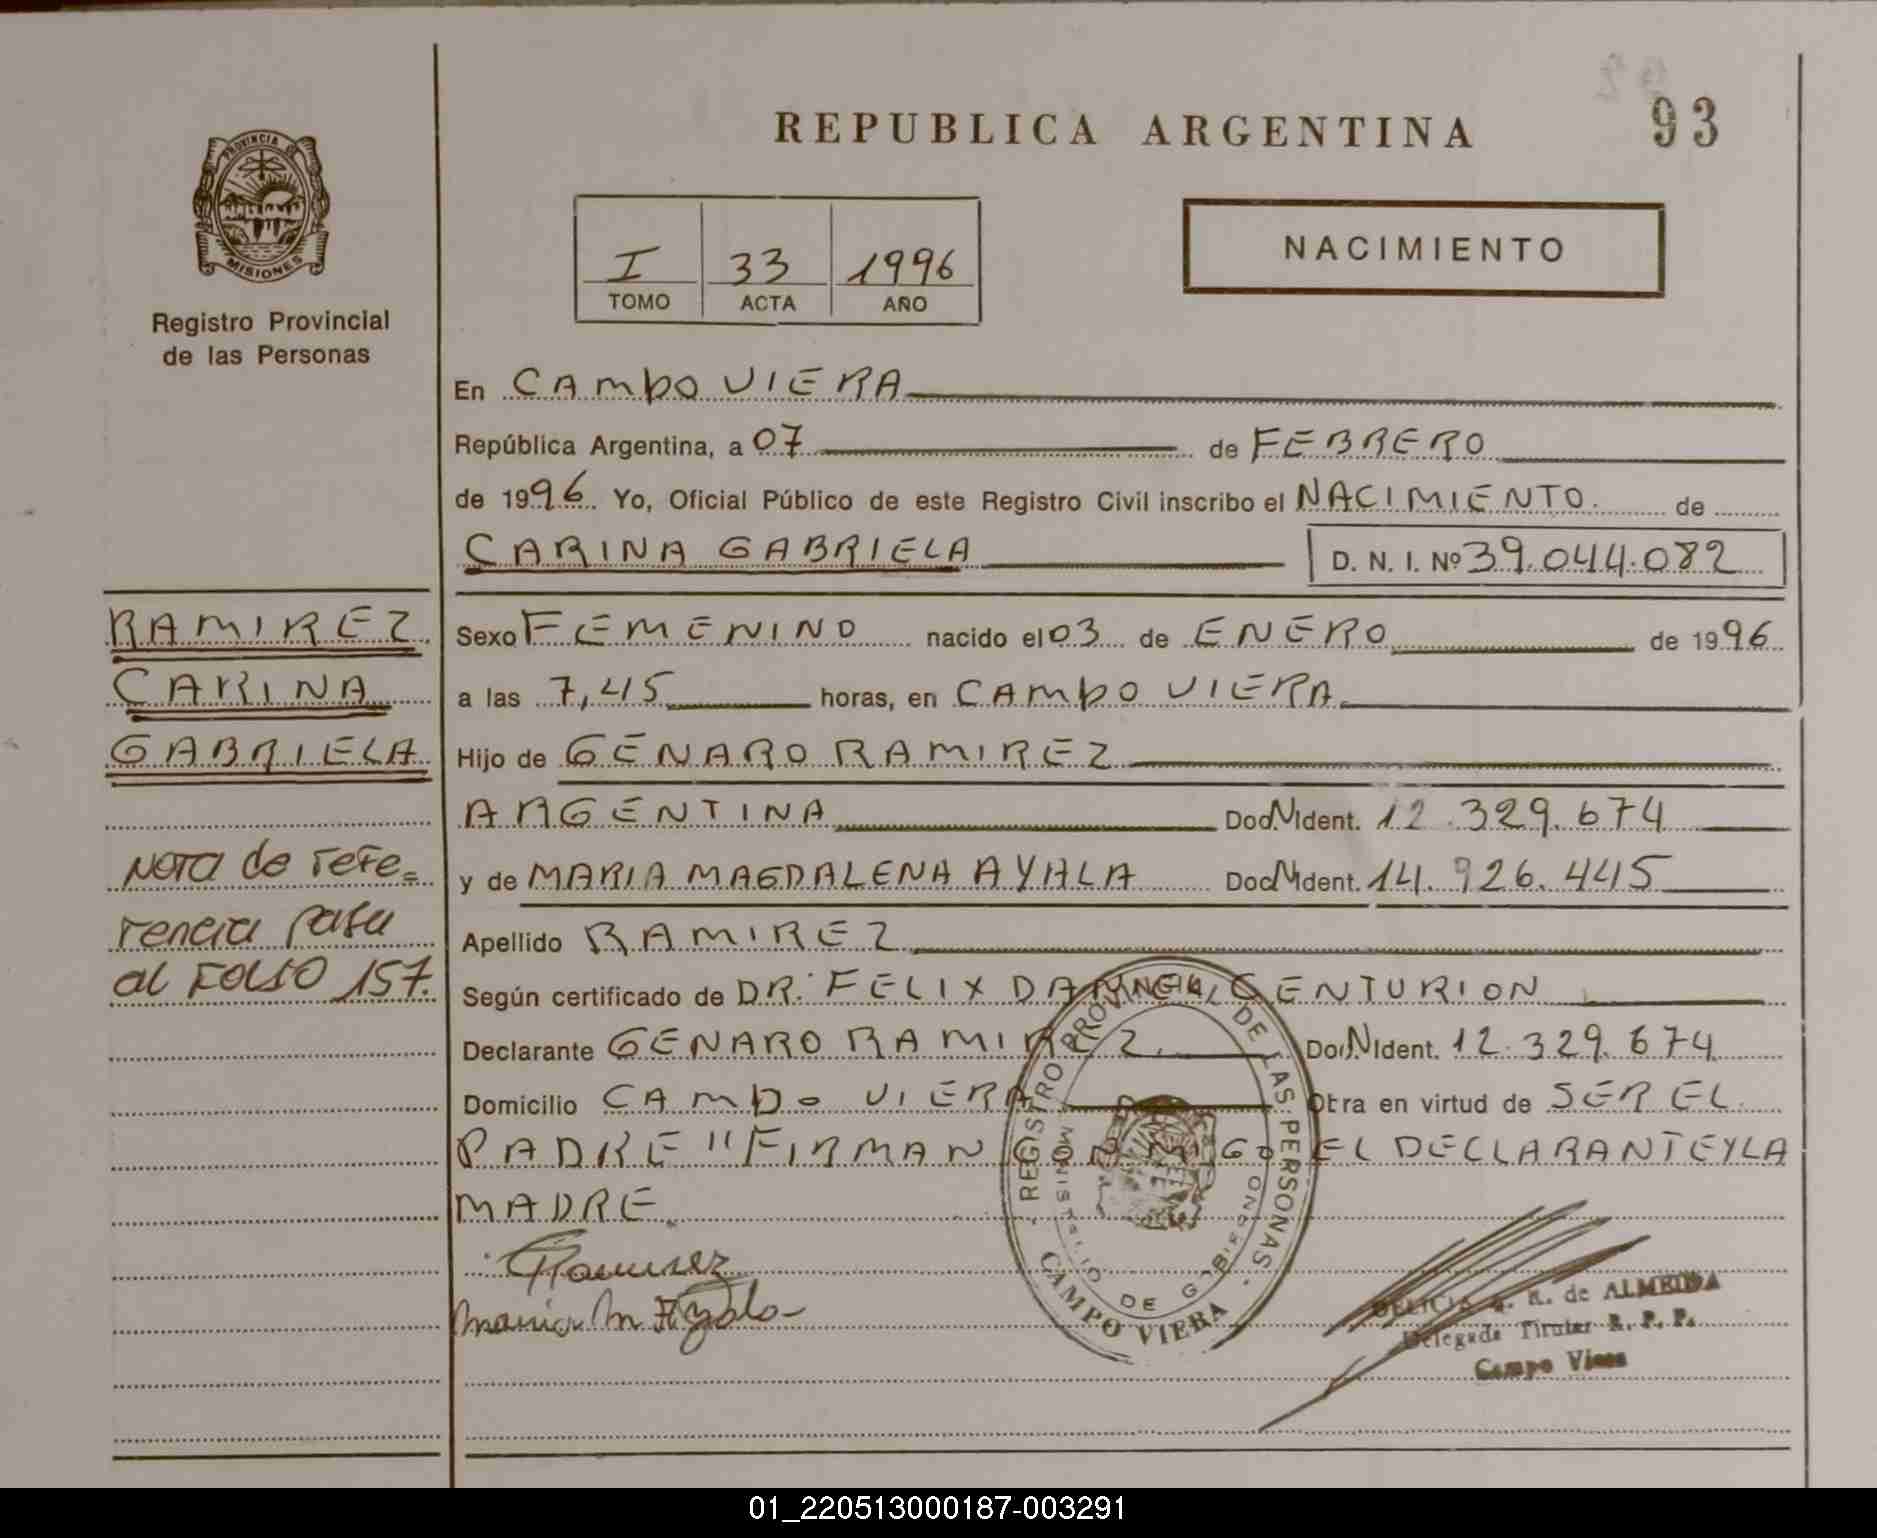 REPUBLICA ARGENTINA
93
PROVINCIA DE
MISIONES
Registro Provincial
de las Personas
I 33 1996
TOMO ACTA AÑO
NACIMIENTO
En CAMPO VIERA
República Argentina, a 07 de FEBRERO
de 1996 Yo, Oficial Público de este Registro Civil inscribo el NACIMIENTO. de
CARINA GABRIELA D. N. I. Nº 39.044.082
RAMIREZ
CARINA
GABRIELA
Nota de refe=
rencia pasa
al FOLIO 157.
Sexo FEMENINO nacido el 03 de ENERO de 1996
a las 7,45 horas, en CAMPO VIERA
Hijo de GENARO RAMIREZ
ARGENTINA Doc. N Ident. 12.329.674
y de MARIA MAGDALENA AYALA Doc. N Ident. 14.926.445
Apellido RAMIREZ
Según certificado de DR. FELIX DANIEL CENTURION
Declarante GENARO RAMIREZ. Doc. N Ident. 12.329.674
Domicilio CAMPO VIERA Obra en virtud de SER EL
PADRE "FIRMAN CONMIGO EL DECLARANTE Y LA
MADRE.
Ramirez
Maria M Ayala
REGISTRO PROVINCIAL DE LAS PERSONAS
MINISTERIO DE GOBIERNO
CAMPO VIERA
DELICIA R. de ALMEIDA
Delegada Titular R. P. P.
Campo Viera
01_220513000187-003291